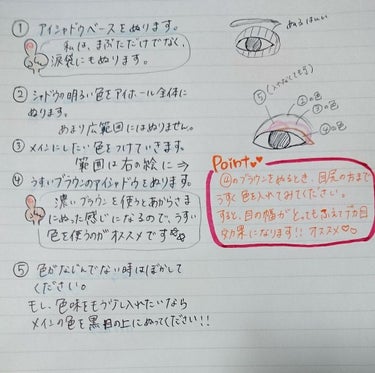 ① アイシャドウベースをぬります。
私は、まぶただけでなく、
涙袋にもぬります。
② シャドウの明るい色をアイホール全体に
ぬります。
あまり広範囲にはぬりません。
③ メインにしたい色をつけていきます。
範囲は右の絵に⇒
④ うすいブラウンのアイシャドウをぬります。
濃いブラウンを使うとあからさま
にぬった感じになるので、うすい
色を使うのがオススメです
⑤ 色がなじんでない時はぼかして
ください。
もし、色味をもう少し入れたいなら
メインの色を黒目の上にぬってください!!
ぬるはんい
⑤(入れなくても可)
②の色
③の色
④の色
Point♥♥
④のブラウンをぬるとき、目尻の方まで
うすく色を入れてみてください。
すると、目の幅がとっても広えてデカ目
効果になります!! オススメ♡♡